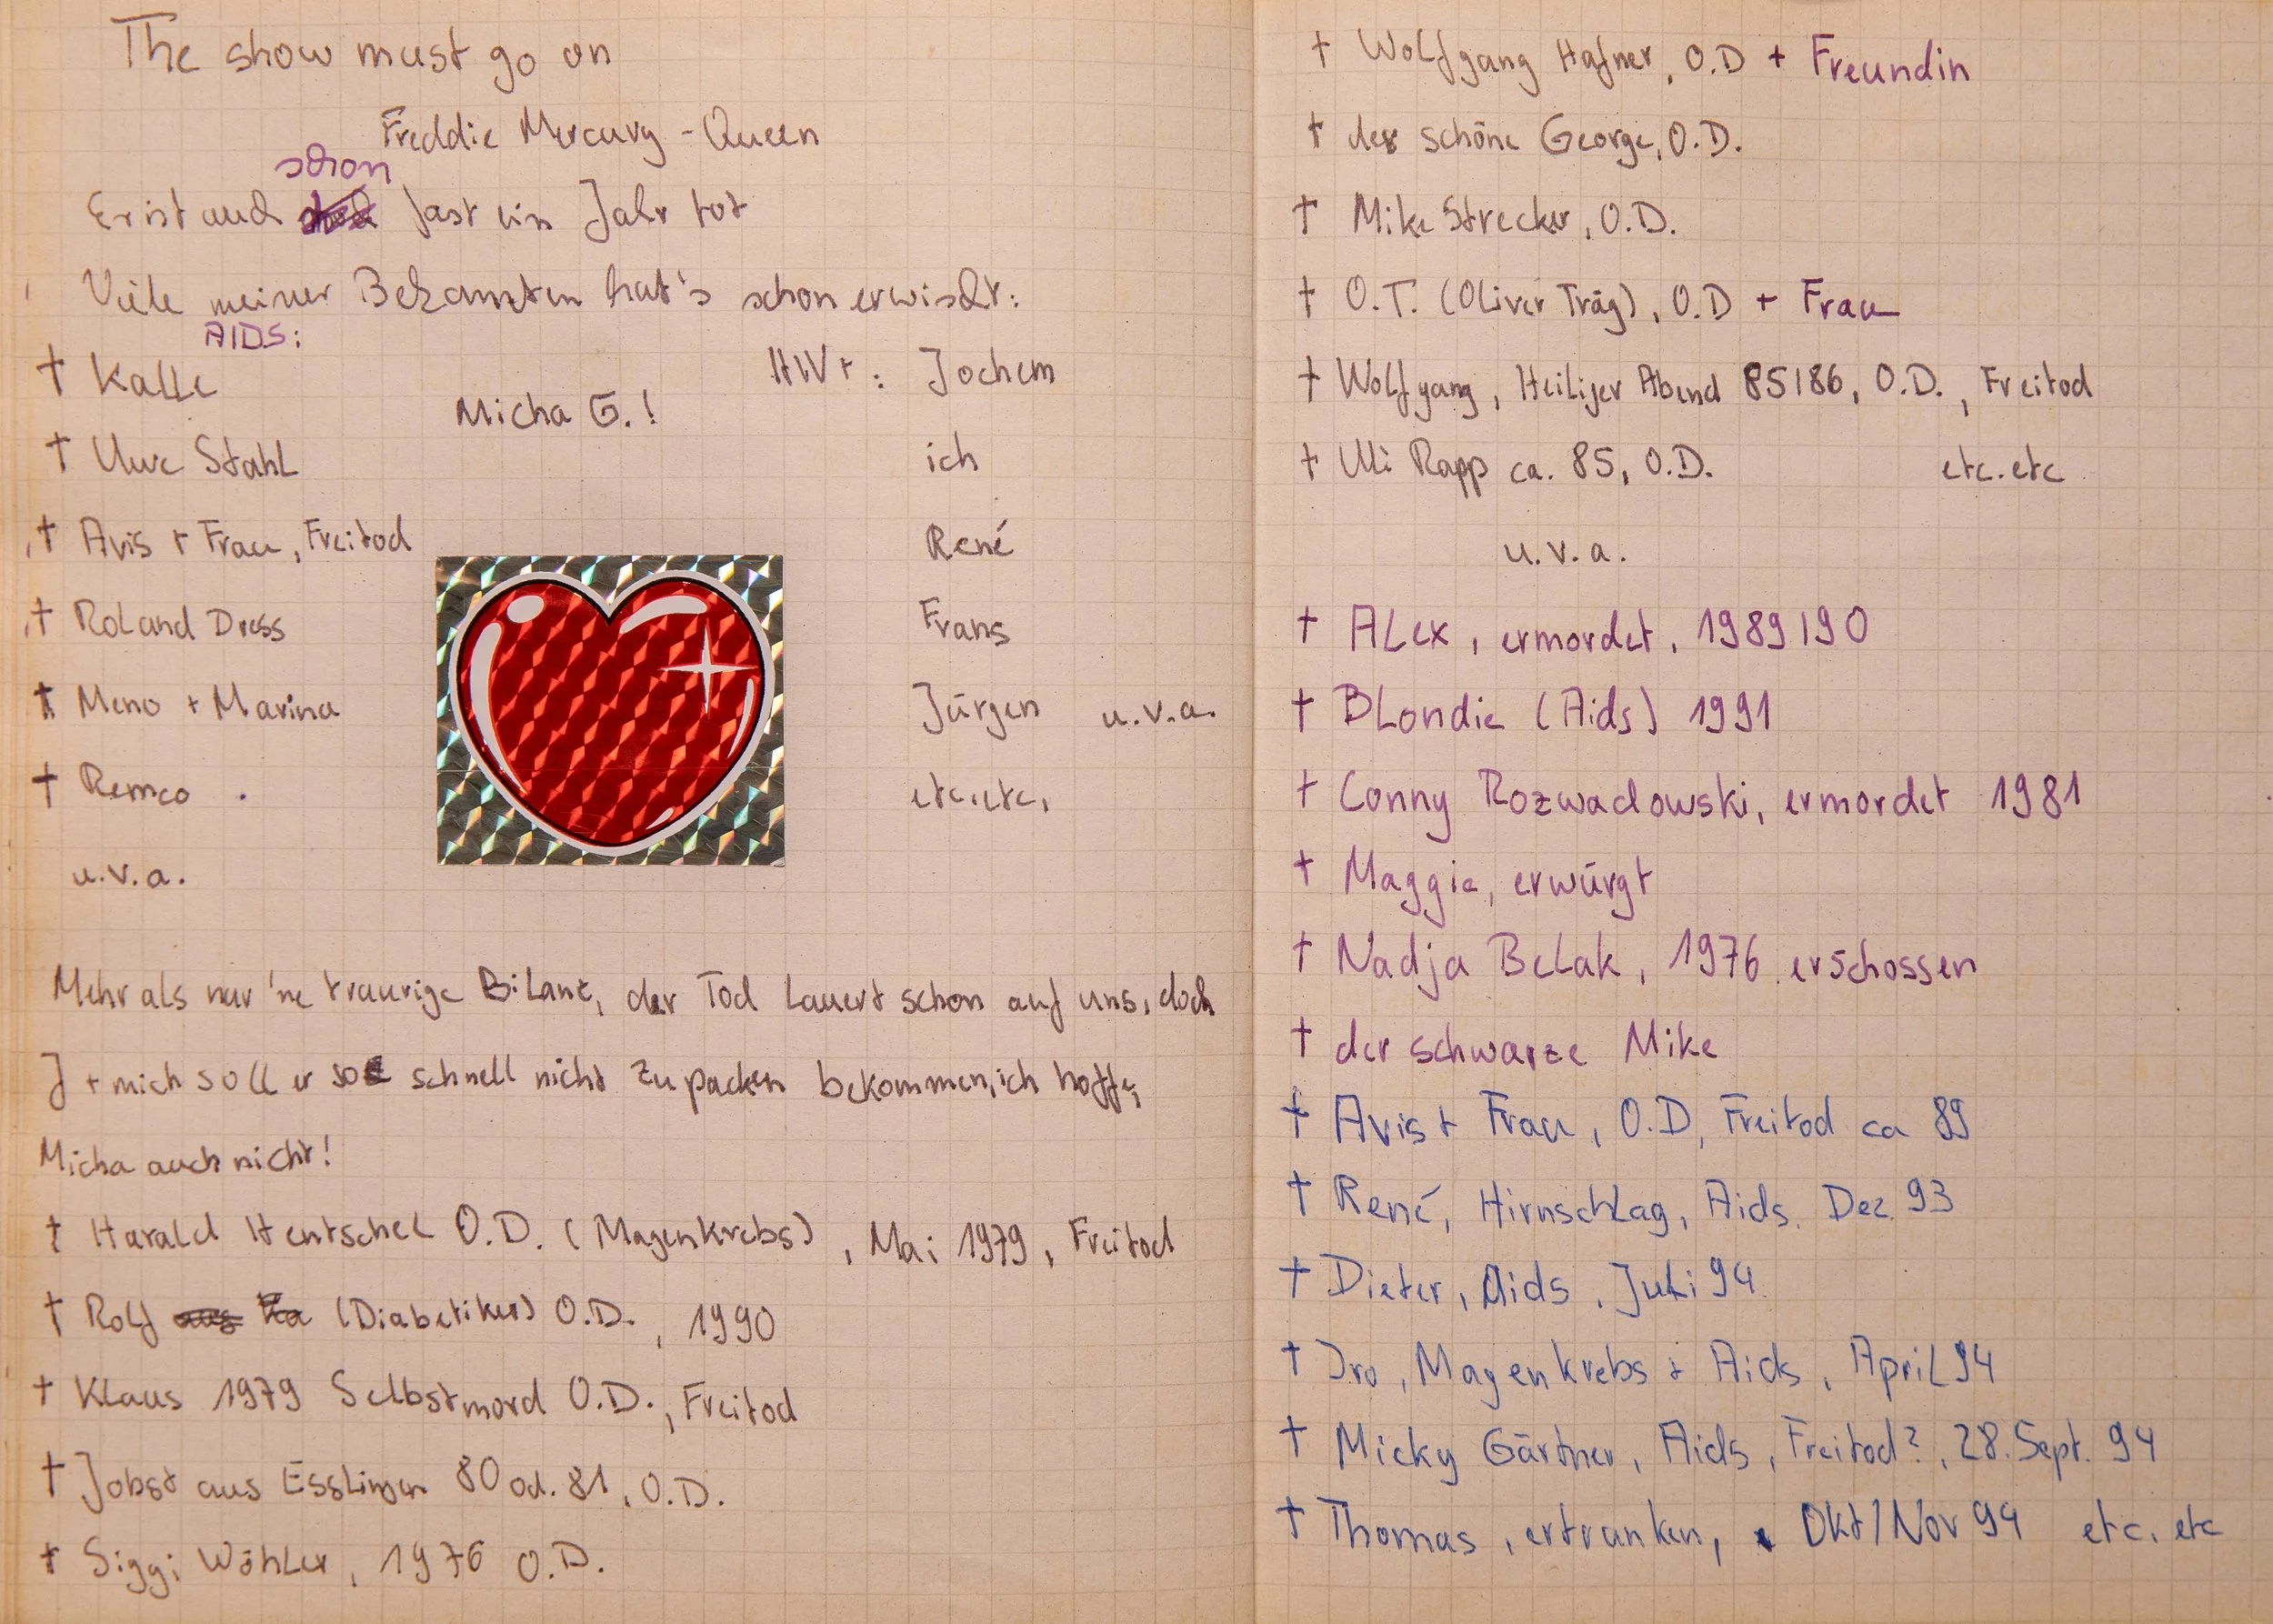 The show must go on
Freddie Mercury - Queen
schon
Er ist auch fast ein Jahr tot
Viele meiner Bekannten hat's schon erwischt:
AIDS:
† Kalle
Micha G.!
HIV+: Jochem
† Uwe Stahl
ich
† Avis + Frau, Freitod
René
† Roland Dress
Frans
† Meno + Marina
Jürgen u.v.a.
† Remco
etc. etc.
u.v.a.
Mehr als nur 'ne traurige Bilanz, der Tod lauert schon auf uns, doch
J + mich soll er so schnell nicht zu packen bekommen, ich hoffe,
Micha auch nicht!
† Harald Hentschel O.D. (Magenkrebs), Mai 1979, Freitod
† Rolf (Diabetiker) O.D., 1990
† Klaus 1979 Selbstmord O.D., Freitod
† Jobst aus Esslingen 80 od. 81, O.D.
† Siggi Wöhler, 1976 O.D.
† Wolfgang Hafner, O.D + Freundin
† der schöne George, O.D.
† Mike Strecker, O.D.
† O.T. (Oliver Träg), O.D + Frau
† Wolfgang, Heiliger Abend 85/86, O.D., Freitod
† Uli Rapp ca. 85, O.D. etc. etc
u.v.a.
† Alex, ermordet, 1989/90
† Blondie (Aids) 1991
† Conny Rozwadowski, ermordet 1981
† Maggie, erwürgt
† Nadja Belak, 1976 erschossen
† der schwarze Mike
† Avis + Frau, O.D, Freitod ca 89
† René, Hirnschlag, Aids, Dez. 93
† Dieter, Aids, Juli 94
† Iro, Magenkrebs + Aids, April 94
† Micky Gärtner, Aids, Freitod?, 28. Sept. 94
† Thomas, ertrunken, Okt/Nov 94 etc. etc